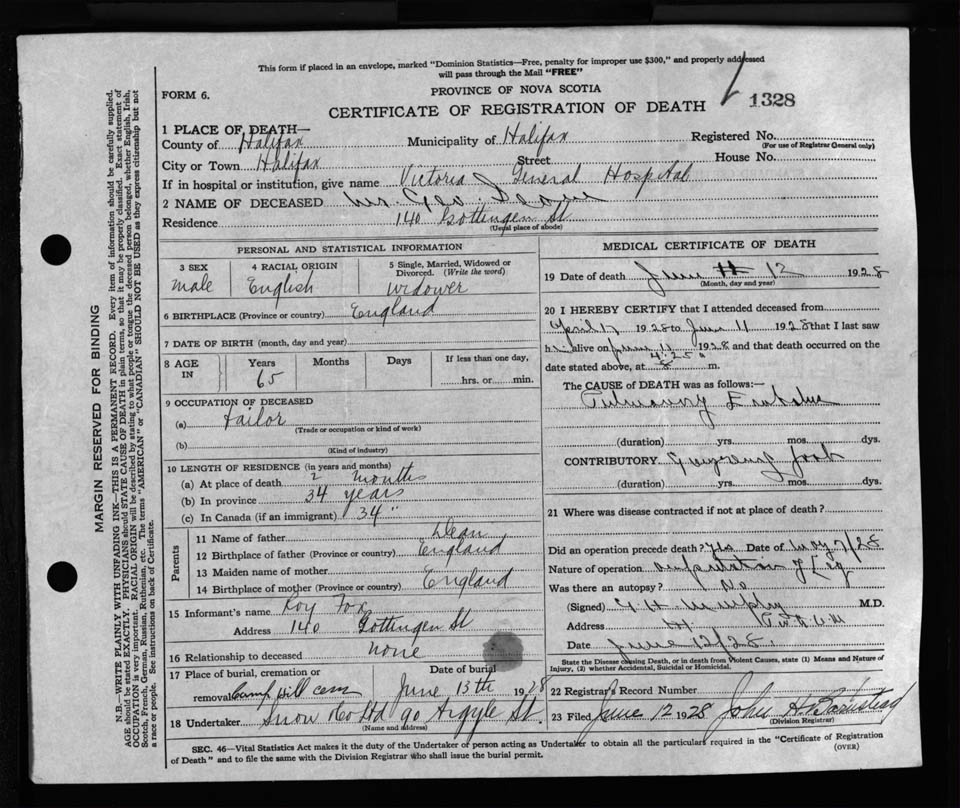 This form if placed in an envelope, marked "Dominion Statistics—Free, penalty for improper use $300," and properly addressed
will pass through the Mail "FREE"
FORM 6.
PROVINCE OF NOVA SCOTIA
CERTIFICATE OF REGISTRATION OF DEATH
1328
1 PLACE OF DEATH—
County of Halifax Municipality of Halifax Registered No.
(For use of Registrar General only)
City or Town Halifax Street House No.
If in hospital or institution, give name Victoria General Hospital
2 NAME OF DECEASED Mr. Geo. Dean
Residence 140 Gottingen St
(Usual place of abode)
PERSONAL AND STATISTICAL INFORMATION
3 SEX 4 RACIAL ORIGIN 5 Single, Married, Widowed or
Divorced. (Write the word)
male English widower
6 BIRTHPLACE (Province or country) England
7 DATE OF BIRTH (month, day and year)
8 AGE IN Years Months Days If less than one day,
65 hrs. or min.
9 OCCUPATION OF DECEASED
(a) tailor
(Trade or occupation or kind of work)
(b)
(Kind of industry)
10 LENGTH OF RESIDENCE (in years and months)
(a) At place of death 2 months
(b) In province 34 years
(c) In Canada (if an immigrant) 34 "
Parents
11 Name of father Dean
12 Birthplace of father (Province or country) England
13 Maiden name of mother
14 Birthplace of mother (Province or country) England
15 Informant's name Roy Fox
Address 140 Gottingen St
16 Relationship to deceased none
17 Place of burial, cremation or Date of burial
removal Camp Hill cem June 13th 1928
18 Undertaker Snow & Co Ltd 90 Argyle St.
(Name and address)
MEDICAL CERTIFICATE OF DEATH
19 Date of death June 12 1928
(Month, day and year)
20 I HEREBY CERTIFY that I attended deceased from
April 17 1928 to June 11 1928 that I last saw
h alive on June 11 1928 and that death occurred on the
date stated above, at 4:25 a m.
The CAUSE of DEATH was as follows:—
Pulmonary Embolus
(duration) yrs. mos. dys.
CONTRIBUTORY Gangrene of foot
(duration) yrs. mos. dys.
21 Where was disease contracted if not at place of death?
Did an operation precede death? Yes Date of May 7/28
Nature of operation amputation of leg
Was there an autopsy? No
(Signed) G H Murphy M.D.
Address
Date June 12/28.
State the Disease causing Death, or in death from Violent Causes, state (1) Means and Nature of
Injury, (2) whether Accidental, Suicidal or Homicidal.
22 Registrar's Record Number
23 Filed June 12 1928 John H Barnstead
(Division Registrar)
SEC. 46—Vital Statistics Act makes it the duty of the Undertaker or person acting as Undertaker to obtain all the particulars required in the "Certificate of Registration
of Death" and to file the same with the Division Registrar who shall issue the burial permit.
(OVER)
MARGIN RESERVED FOR BINDING
N.B.—WRITE PLAINLY WITH UNFADING INK—THIS IS A PERMANENT RECORD. Every item of information should be carefully supplied.
AGE should be stated EXACTLY. PHYSICIANS should STATE CAUSE OF DEATH in plain terms, so that it may be properly classified. Exact statement of
OCCUPATION is very important. RACIAL ORIGIN will be described by stating to what people or tongue the deceased person belonged, whether English, Irish,
Scotch, French, German, Russian, Ruthenian, etc. The terms "AMERICAN" or "CANADIAN" SHOULD NOT BE USED as they express citizenship but not
a race or people. See instructions on back of Certificate.